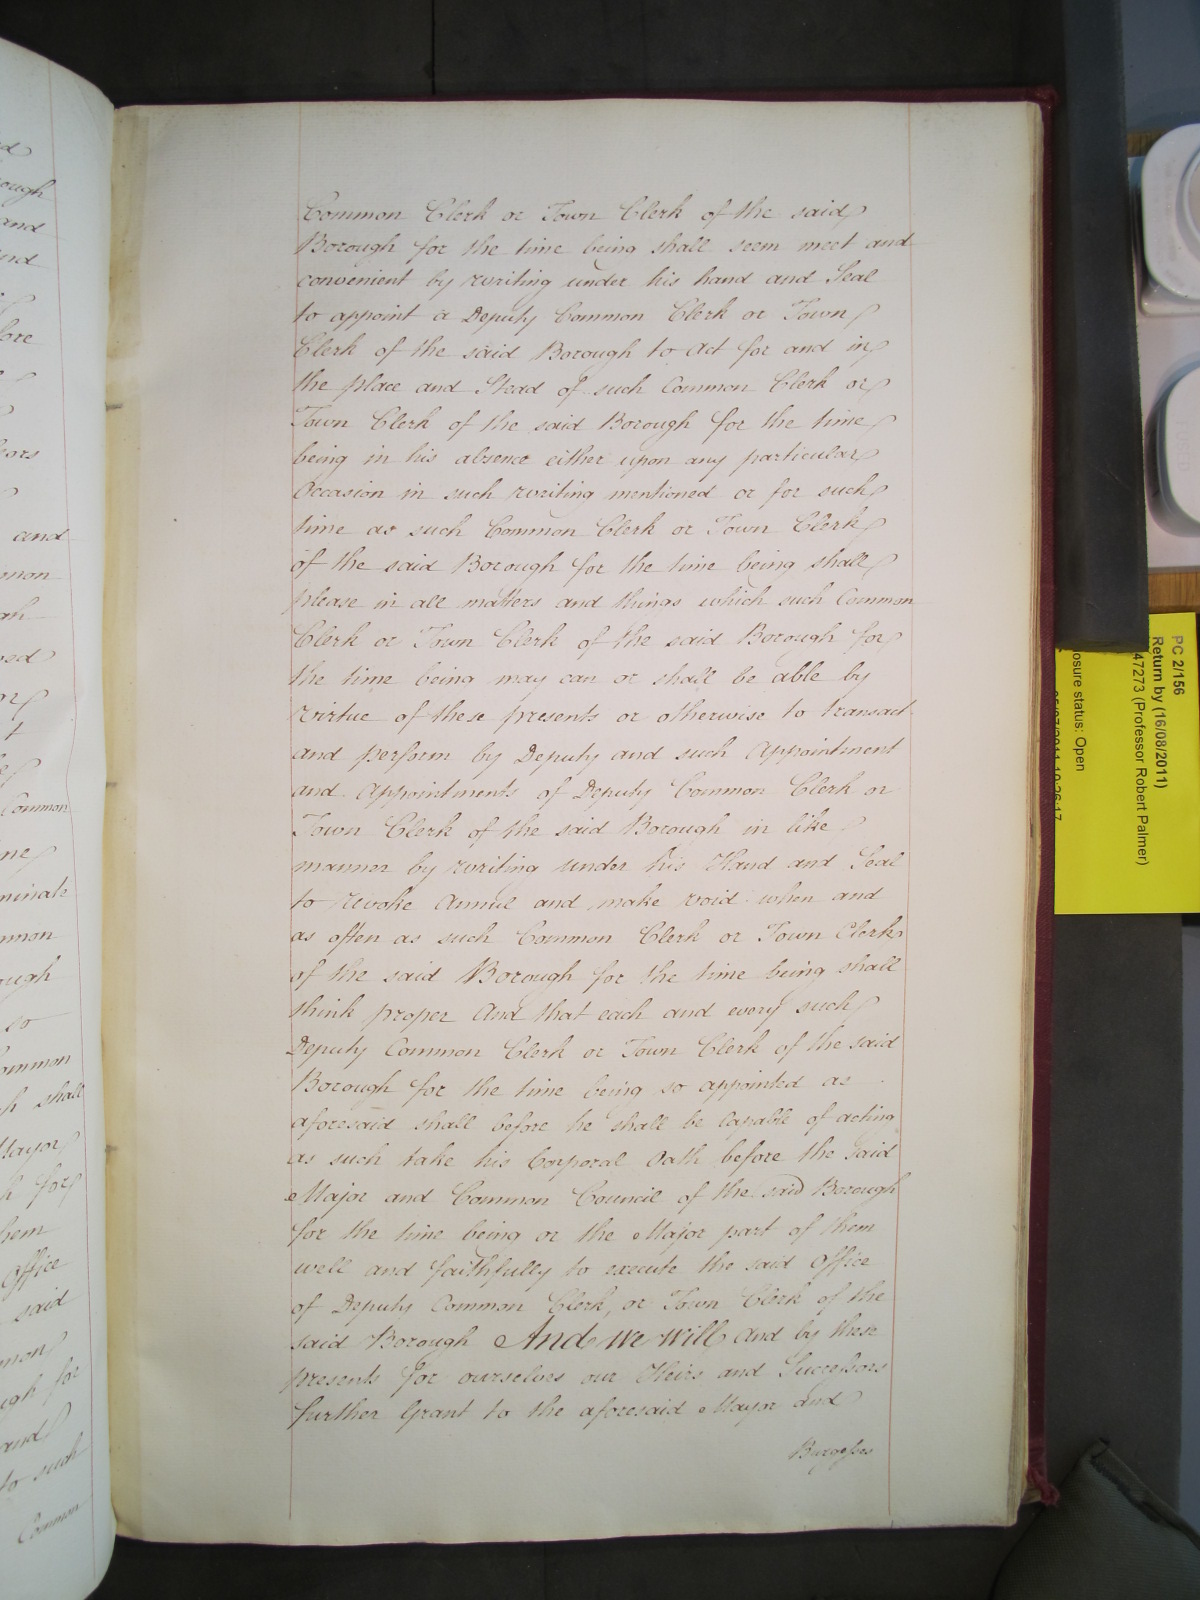 Common Clerk or Town Clerk of the said
Borough for the time being shall seem meet and
convenient by writing under his hand and Seal
to appoint a Deputy Common Clerk or Town
Clerk of the said Borough to Act for and in
the place and Stead of such Common Clerk or
Town Clerk of the said Borough for the time
being in his absence either upon any particular
Occasion in such writing mentioned or for such
time as such Common Clerk or Town Clerk
of the said Borough for the time being shall
please in all matters and things which such Common
Clerk or Town Clerk of the said Borough for
the time being may can or shall be able by
virtue of these presents or otherwise to transact
and perform by Deputy and such Appointment
and Appointments of Deputy Common Clerk or
Town Clerk of the said Borough in like
manner by writing under his Hand and Seal
to revoke Annul and make void when and
as often as such Common Clerk or Town Clerk
of the said Borough for the time being shall
think proper And that each and every such
Deputy Common Clerk or Town Clerk of the said
Borough for the time being so appointed as
aforesaid shall before he shall be Capable of acting
as such take his Corporal Oath before the said
Major and Common Council of the said Borough
for the time being or the Major part of them
well and faithfully to execute the said Office
of Deputy Common Clerk, or Town Clerk of the
said Borough And we will And by these
presents for ourselves our Heirs and Successors
further Grant to the aforesaid Mayor and
Burgesses
and
Common
minate
so
shall
Mayor
for
Office
said
and
to such
Common
PC 2/156
Return by (16/08/2011)
47273 (Professor Robert Palmer)
osure status: Open